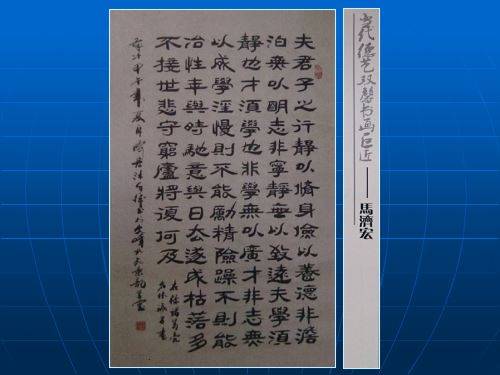 当代德艺双馨书画巨匠——馬濟宏
夫君子之行靜以脩身儉以養德非澹
泊無以明志非寧靜無以致遠夫學須
靜也才須學也非學無以廣才非志無
以成學淫慢則不能勵精險躁不則能
冶性年與時馳意與日去遂成枯落多
不接世悲守窮廬將復何及